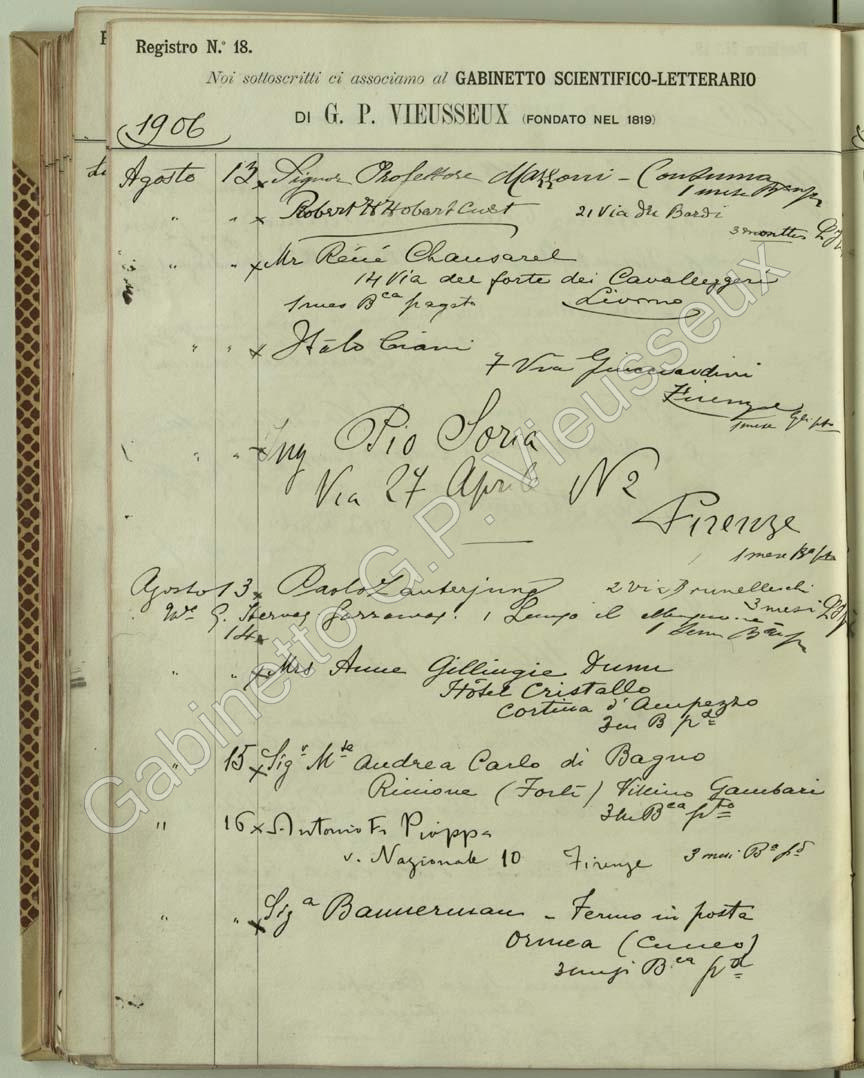 Registro N.° 18.
Noi sottoscritti ci associamo al GABINETTO SCIENTIFICO-LETTERARIO
DI G. P. VIEUSSEUX (FONDATO NEL 1819)
1906
Agosto 13 x Signor Professore Mazzoni - Consuma
1 mese
" " x Robert H Hobart Cust 21 Via dei Bardi
3 months
" " x Mr Réné Chansarel
14 Via del forte dei Cavalleggeri
1 mes B.ca pagato Livorno
" " x Italo Ciani
7 Via Guicciardini
Firenze
1 mese
" " x Ing Pio Soria
Via 27 Aprile N 2
Firenze
1 mese
Agosto 13 x Paolo Zanterjung 2 via Brunelleschi
3 mesi
G. 1 Lungo il
14 x
" " x Mrs Anne Gillingie Dunn
Hôtel Cristallo
Cortina d'Ampezzo
3 m B p.to
" 15 x Sig.r M.se Andrea Carlo di Bagno
Riccione (Forlì) Villino Gambari
3 m B.ca p.to
" 16 x Antonio Fr. Pioppa
v. Nazionale 10 Firenze 3 mesi B.a p.o
" " x Sig.a Bannerman - Fermo in posta
Ormea (Cuneo)
3 mesi B.ca p.o
Gabinetto G.P. Vieusseux